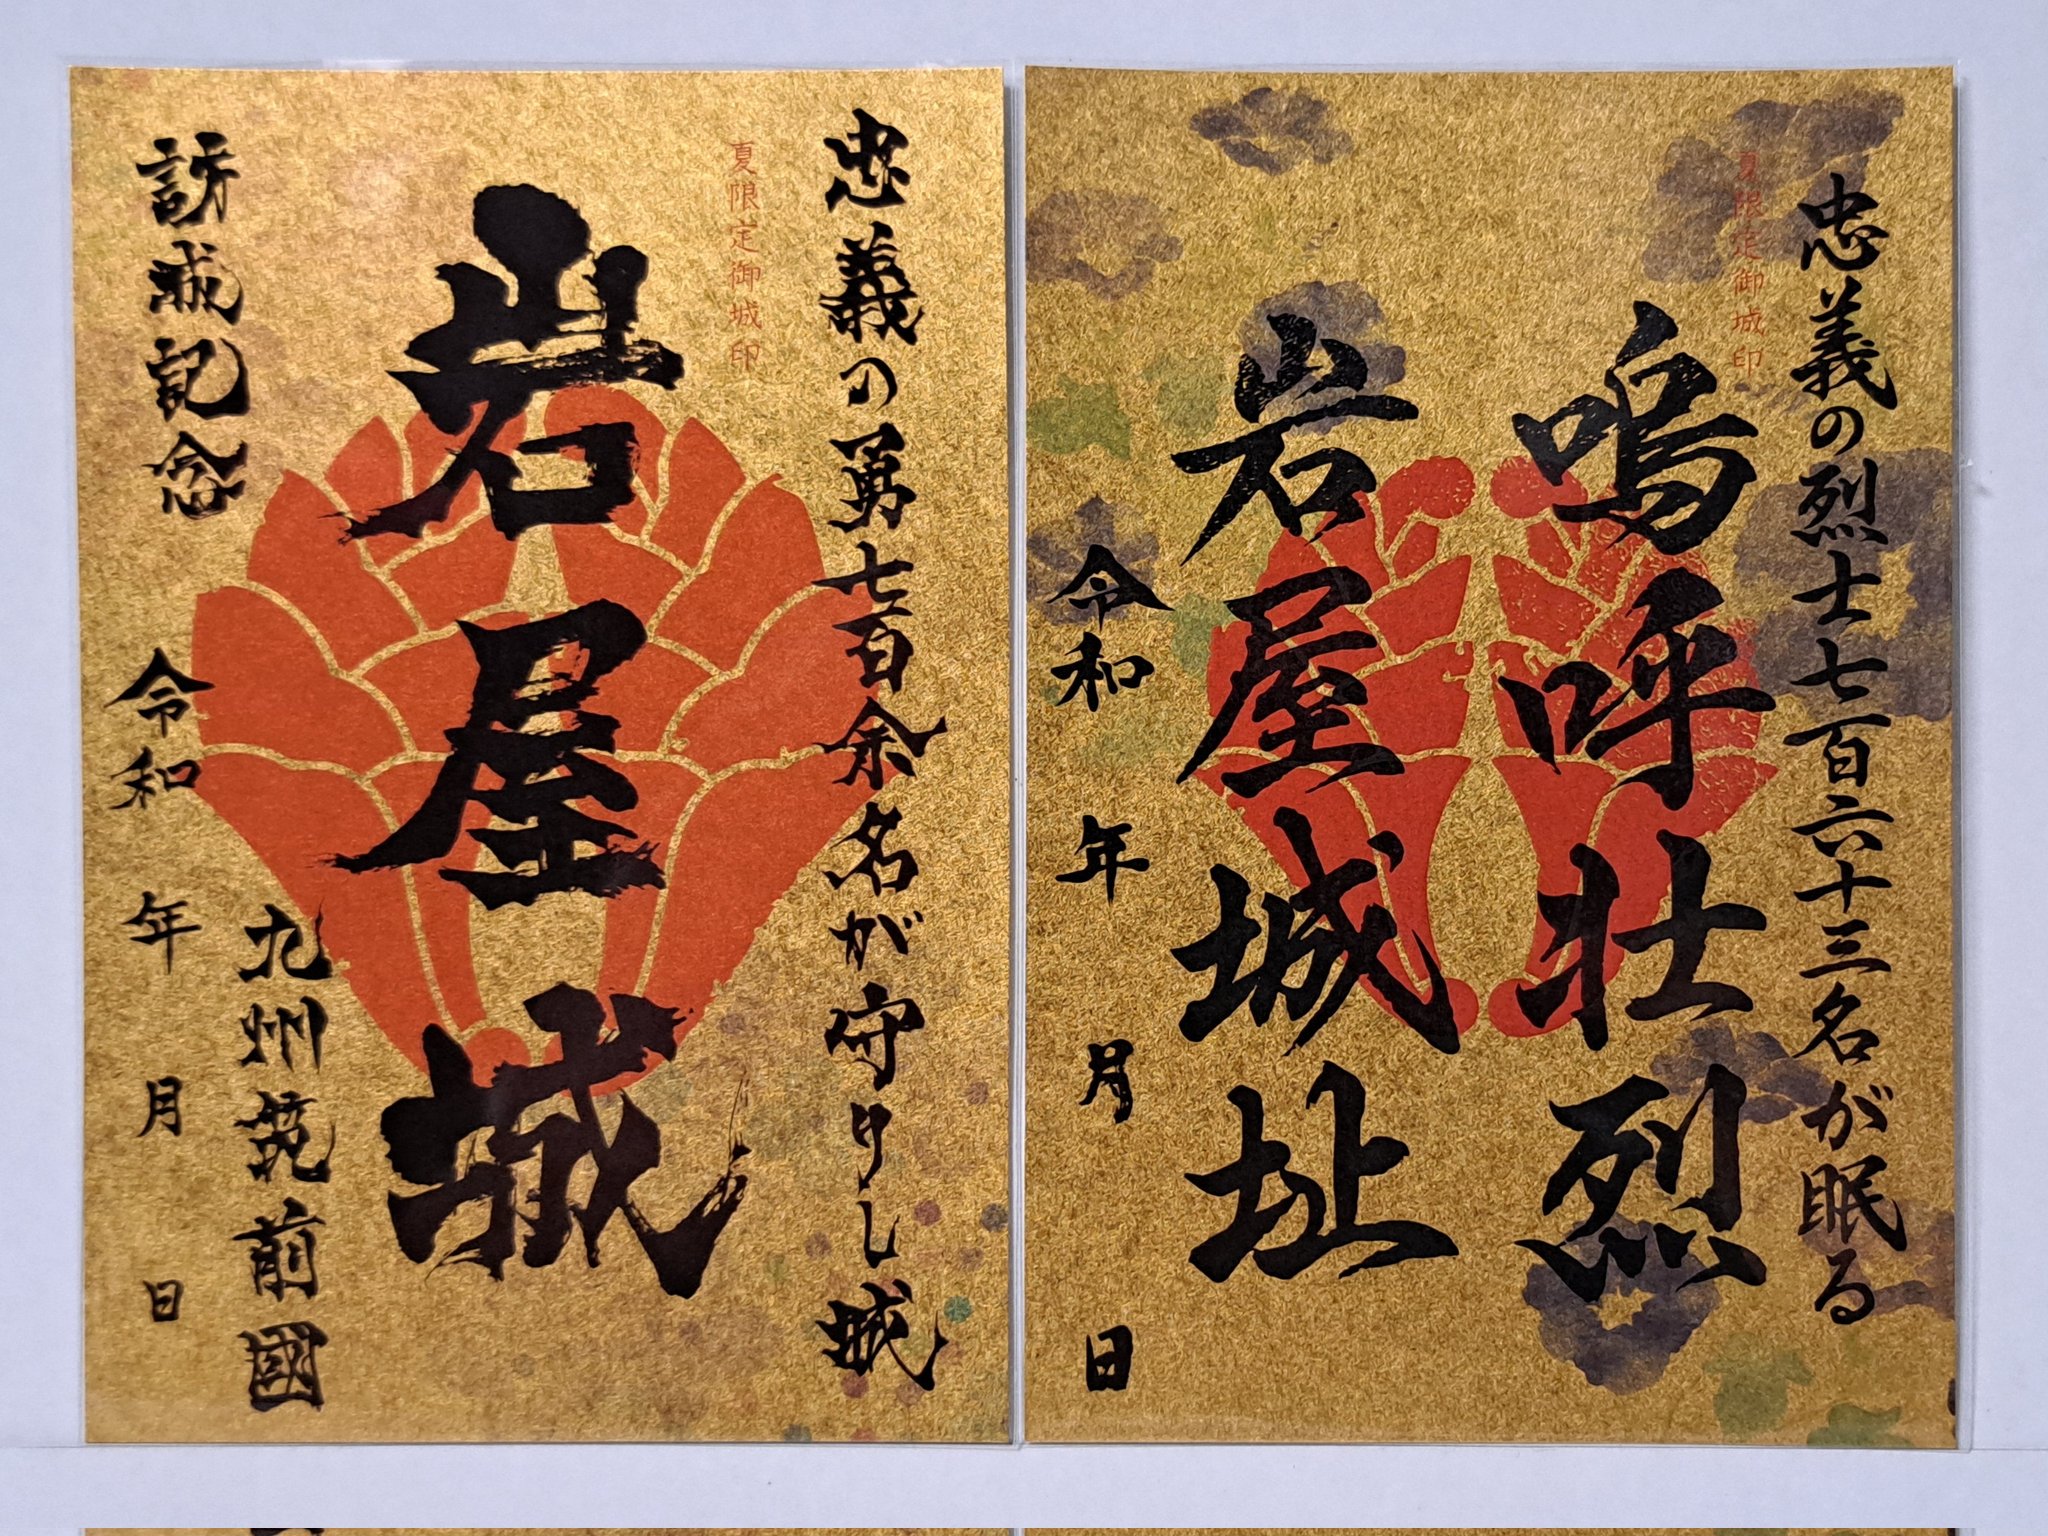 忠義の勇七百余名が守りし城
夏限定御城印
岩屋城
九州筑前國
訪城記念
令和 年 月 日
忠義の烈士七百六十三名が眠る
夏限定御城印
嗚呼壮烈
岩屋城址
令和 年 月 日